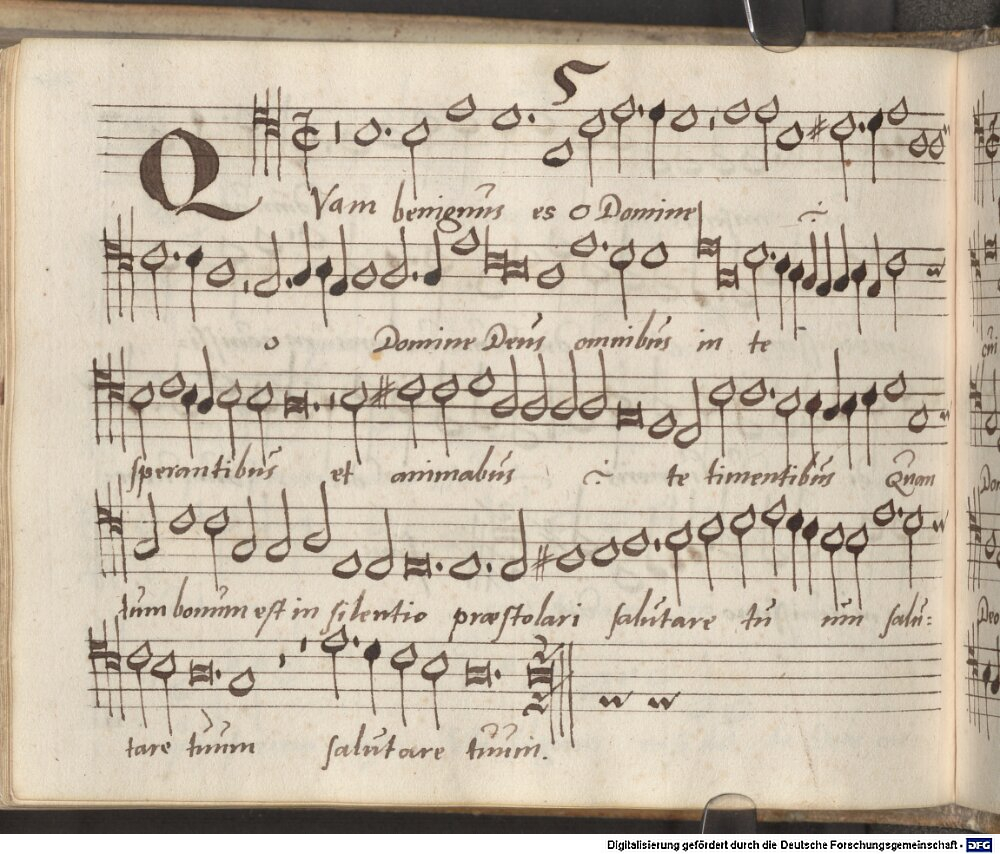 5
QVam benignus es o Domine
o Domine Deus omnibus in te
sperantibus et animabus te timentibus Quan
tum bonum est in silentio præstolari salutare tu um salu:
tare tuum salutare tuum.
Digitalisierung gefördert durch die Deutsche Forschungsgemeinschaft - DFG